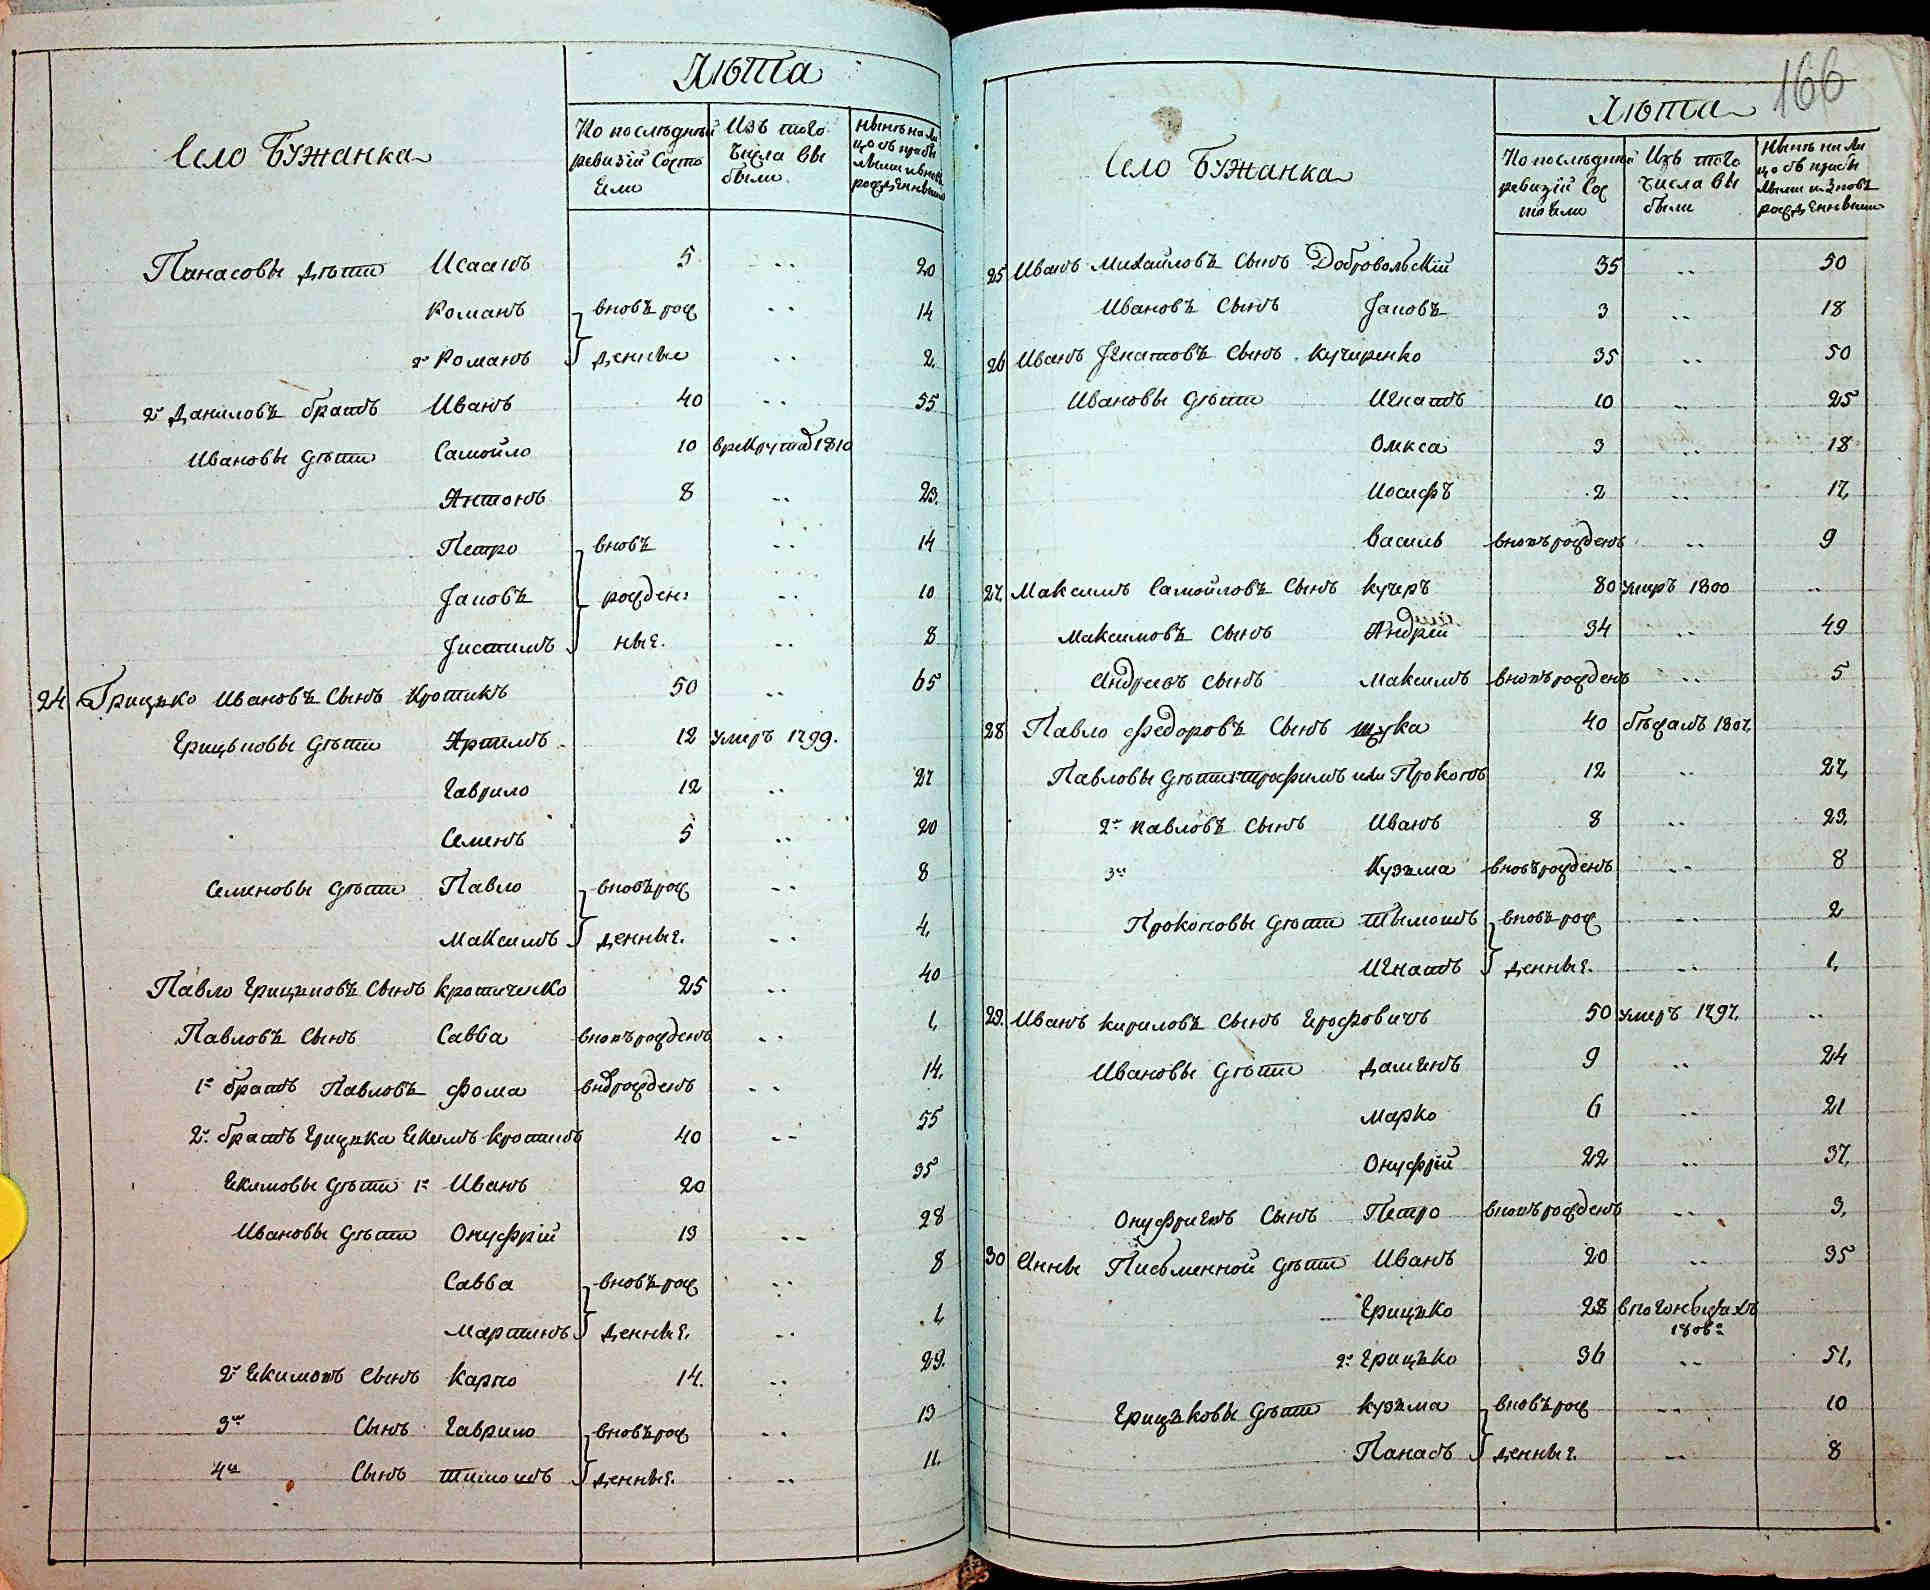 Село Бужанка
Лѣта
По послѣдней ревизіи состояли
Изъ того числа выбыли
Панасовы дѣти Исаакъ 5 .. 20
Романъ вновь рож .. 14
2й Романъ денные .. 2
2й Даниловъ братъ Иванъ 40 .. 55
Ивановы дѣти Самойло 10 врекруты 1810
Антонъ 8 .. 23
Петро вновь .. 14
Яковъ рожден .. 10
Устимъ ные .. 8
24 Грицько Ивановъ Сынъ Кротикъ 50 .. 65
Грицьковы дѣти Артимъ 12 умеръ 1799.
Гаврило 12 .. 27
Семенъ 5 .. 20
Семеновы дѣти Павло вновь рож .. 8
Максимъ денные. .. 4
Павло Грицьковъ Сынъ Кротиченко 25 .. 40
Павловъ Сынъ Савва вновь рожденъ .. 1
1й братъ Павловъ Фома вновь рожденъ .. 14
2й братъ Грицька Екимъ Кротикъ 40 .. 55
Екимовы дѣти 1й Иванъ 20 35
Ивановы дѣти Онуфрій 13 .. 28
Савва вновь рож .. 8
Мартинъ денные. .. 1
2й Екимовъ Сынъ Карпо 14. .. 29.
3й Сынъ Гаврило вновь рож .. 13
4й Сынъ Тимошъ денные. .. 11.
166
Село Бужанка
Лѣта
По послѣдней ревизіи состояли
Изъ того числа выбыли
25 Иванъ Михайловъ Сынъ Добровольскій 35 .. 50
Ивановъ Сынъ Яковъ 3 .. 18
26 Иванъ Игнатовъ Сынъ Кучиренко 35 .. 50
Ивановы дѣти Игнатъ 10 .. 25
Омкса 3 .. 18
Иосифъ 2 .. 17
Василь вновь рожденъ .. 9
27 Максимъ Самойловъ Сынъ Кучеръ 80 умеръ 1800 ..
Максимовъ Сынъ Андрій 34 .. 49
Андреевъ Сынъ Максимъ вновь рожденъ .. 5
28 Павло Федоровъ Сынъ Щука 40 бѣжалъ 1807
Павловы дѣти Трофимъ или Прокопъ 12 .. 27
2й Павловъ Сынъ Иванъ 8 .. 23
3й Кузьма вновь рожденъ .. 8
Прокоповы дѣти Тымошъ вновь рож .. 2
Игнатъ денные. .. 1
29. Иванъ Кириловъ Сынъ Ерофовичъ 50 умеръ 1797. ..
Ивановы дѣти Даминъ 9 .. 24
Марко 6 .. 21
Онуфрій 22 .. 37
Онуфріевъ Сынъ Петро вновь рожденъ .. 3
30 Анны Письменной дѣти Иванъ 20 .. 35
Грицько 28
2й Грицько 36 .. 51
Грицьковы дѣти Кузьма вновь рож .. 10
Панасъ денные. .. 8